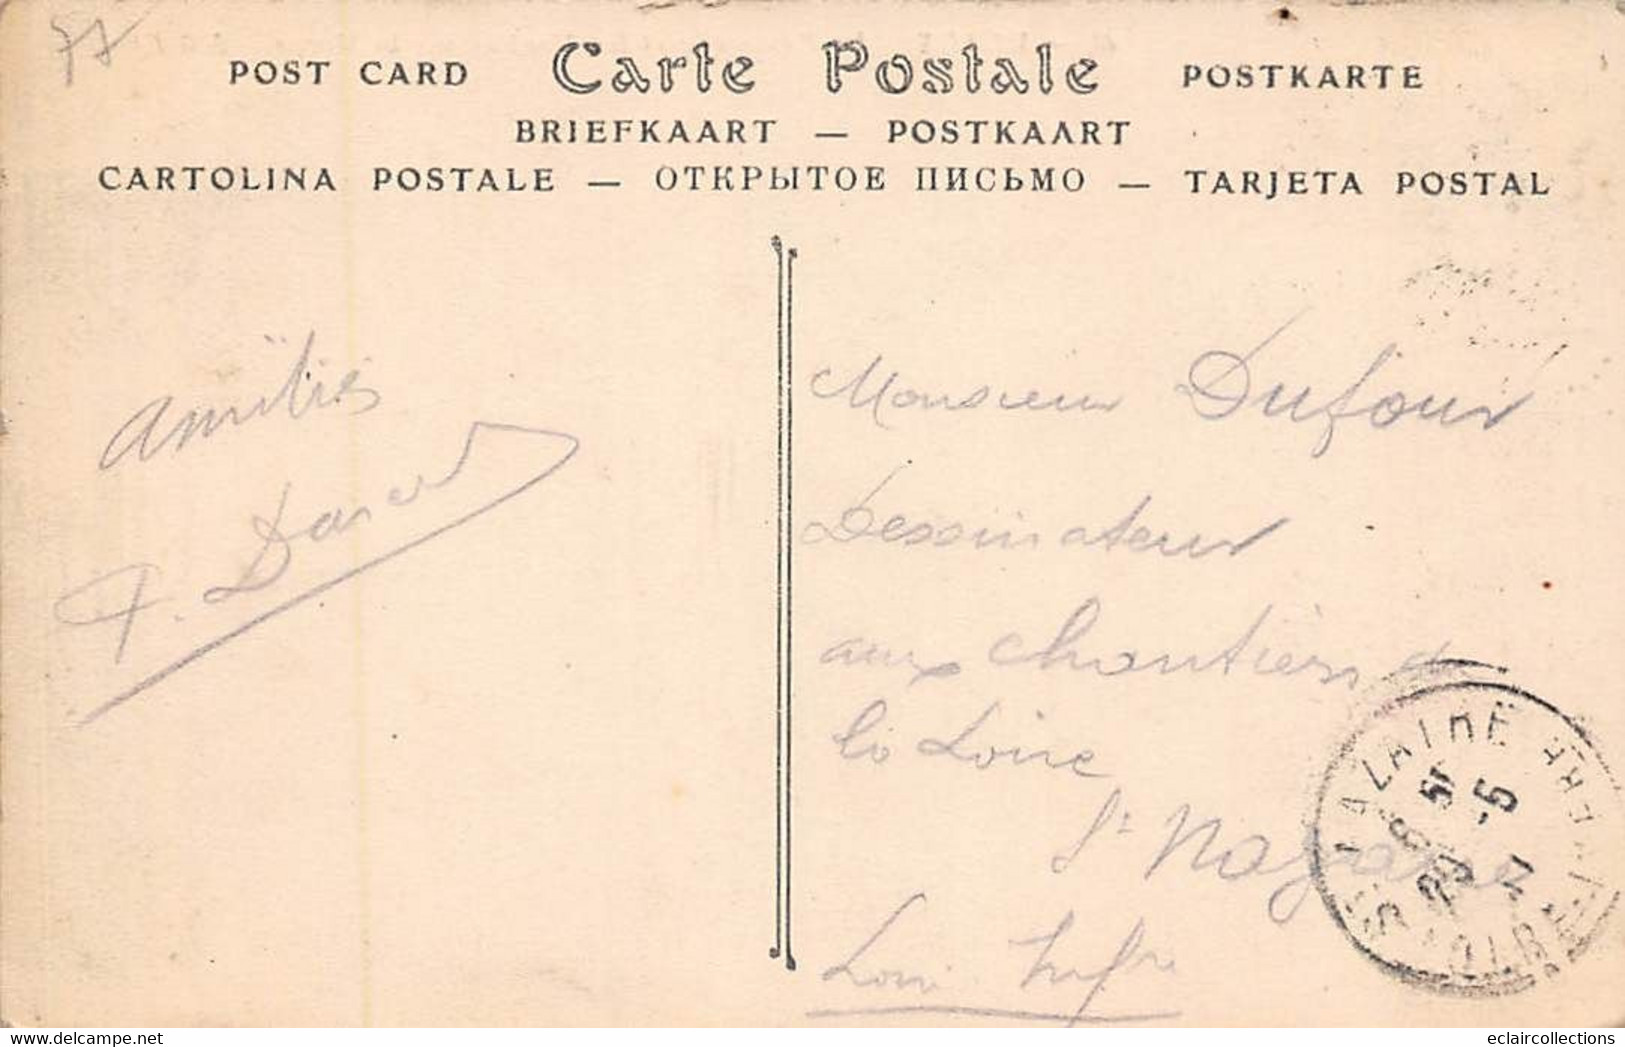 77
POST CARD Carte Postale POSTKARTE
BRIEFKAART — POSTKAART
CARTOLINA POSTALE — ОТКРЫТОЕ ПИСЬМО — TARJETA POSTAL
Amitiés
Monsieur Dufour
Dessinateur
aux Chantiers de
la Loire
St Nazaire
Loire Infre
ST NAZAIRE
eclaircollections